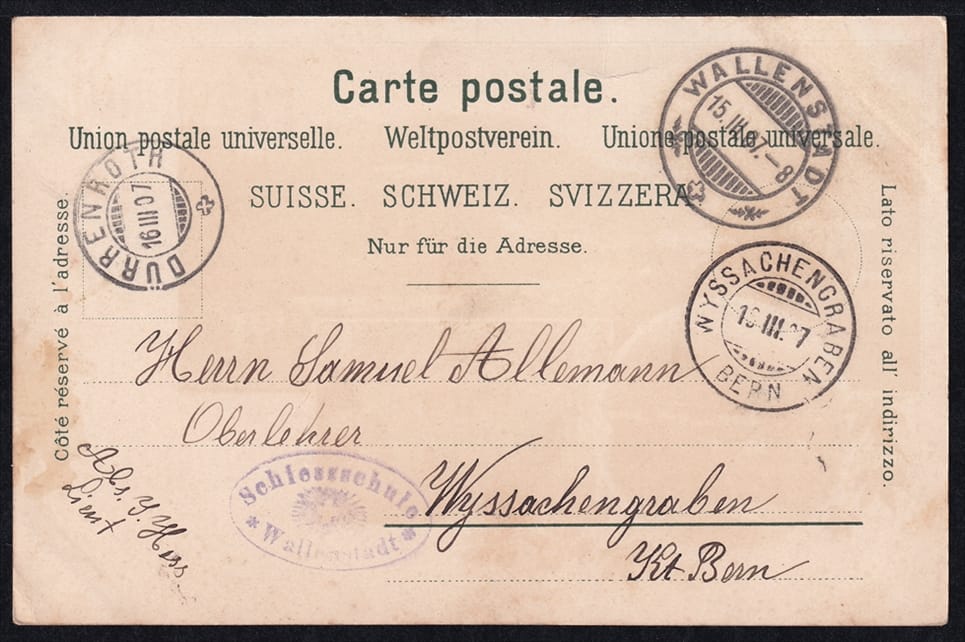 Carte postale.
Union postale universelle. Weltpostverein. Unione postale universale.
SUISSE. SCHWEIZ. SVIZZERA
Nur für die Adresse.
Côté réservé à l'adresse.
Lato riservato all' indirizzo.
WALLENSTADT
15.III.07.-8
DÜRRENROTH
16 III 07
WYSSACHENGRABEN
16.III.07
BERN
Herrn Samuel Allemann
Oberlehrer
Wyssachengraben
Kt Bern
Schiessschule
* Wallenstadt *
Abs. J. Hess
Lieut